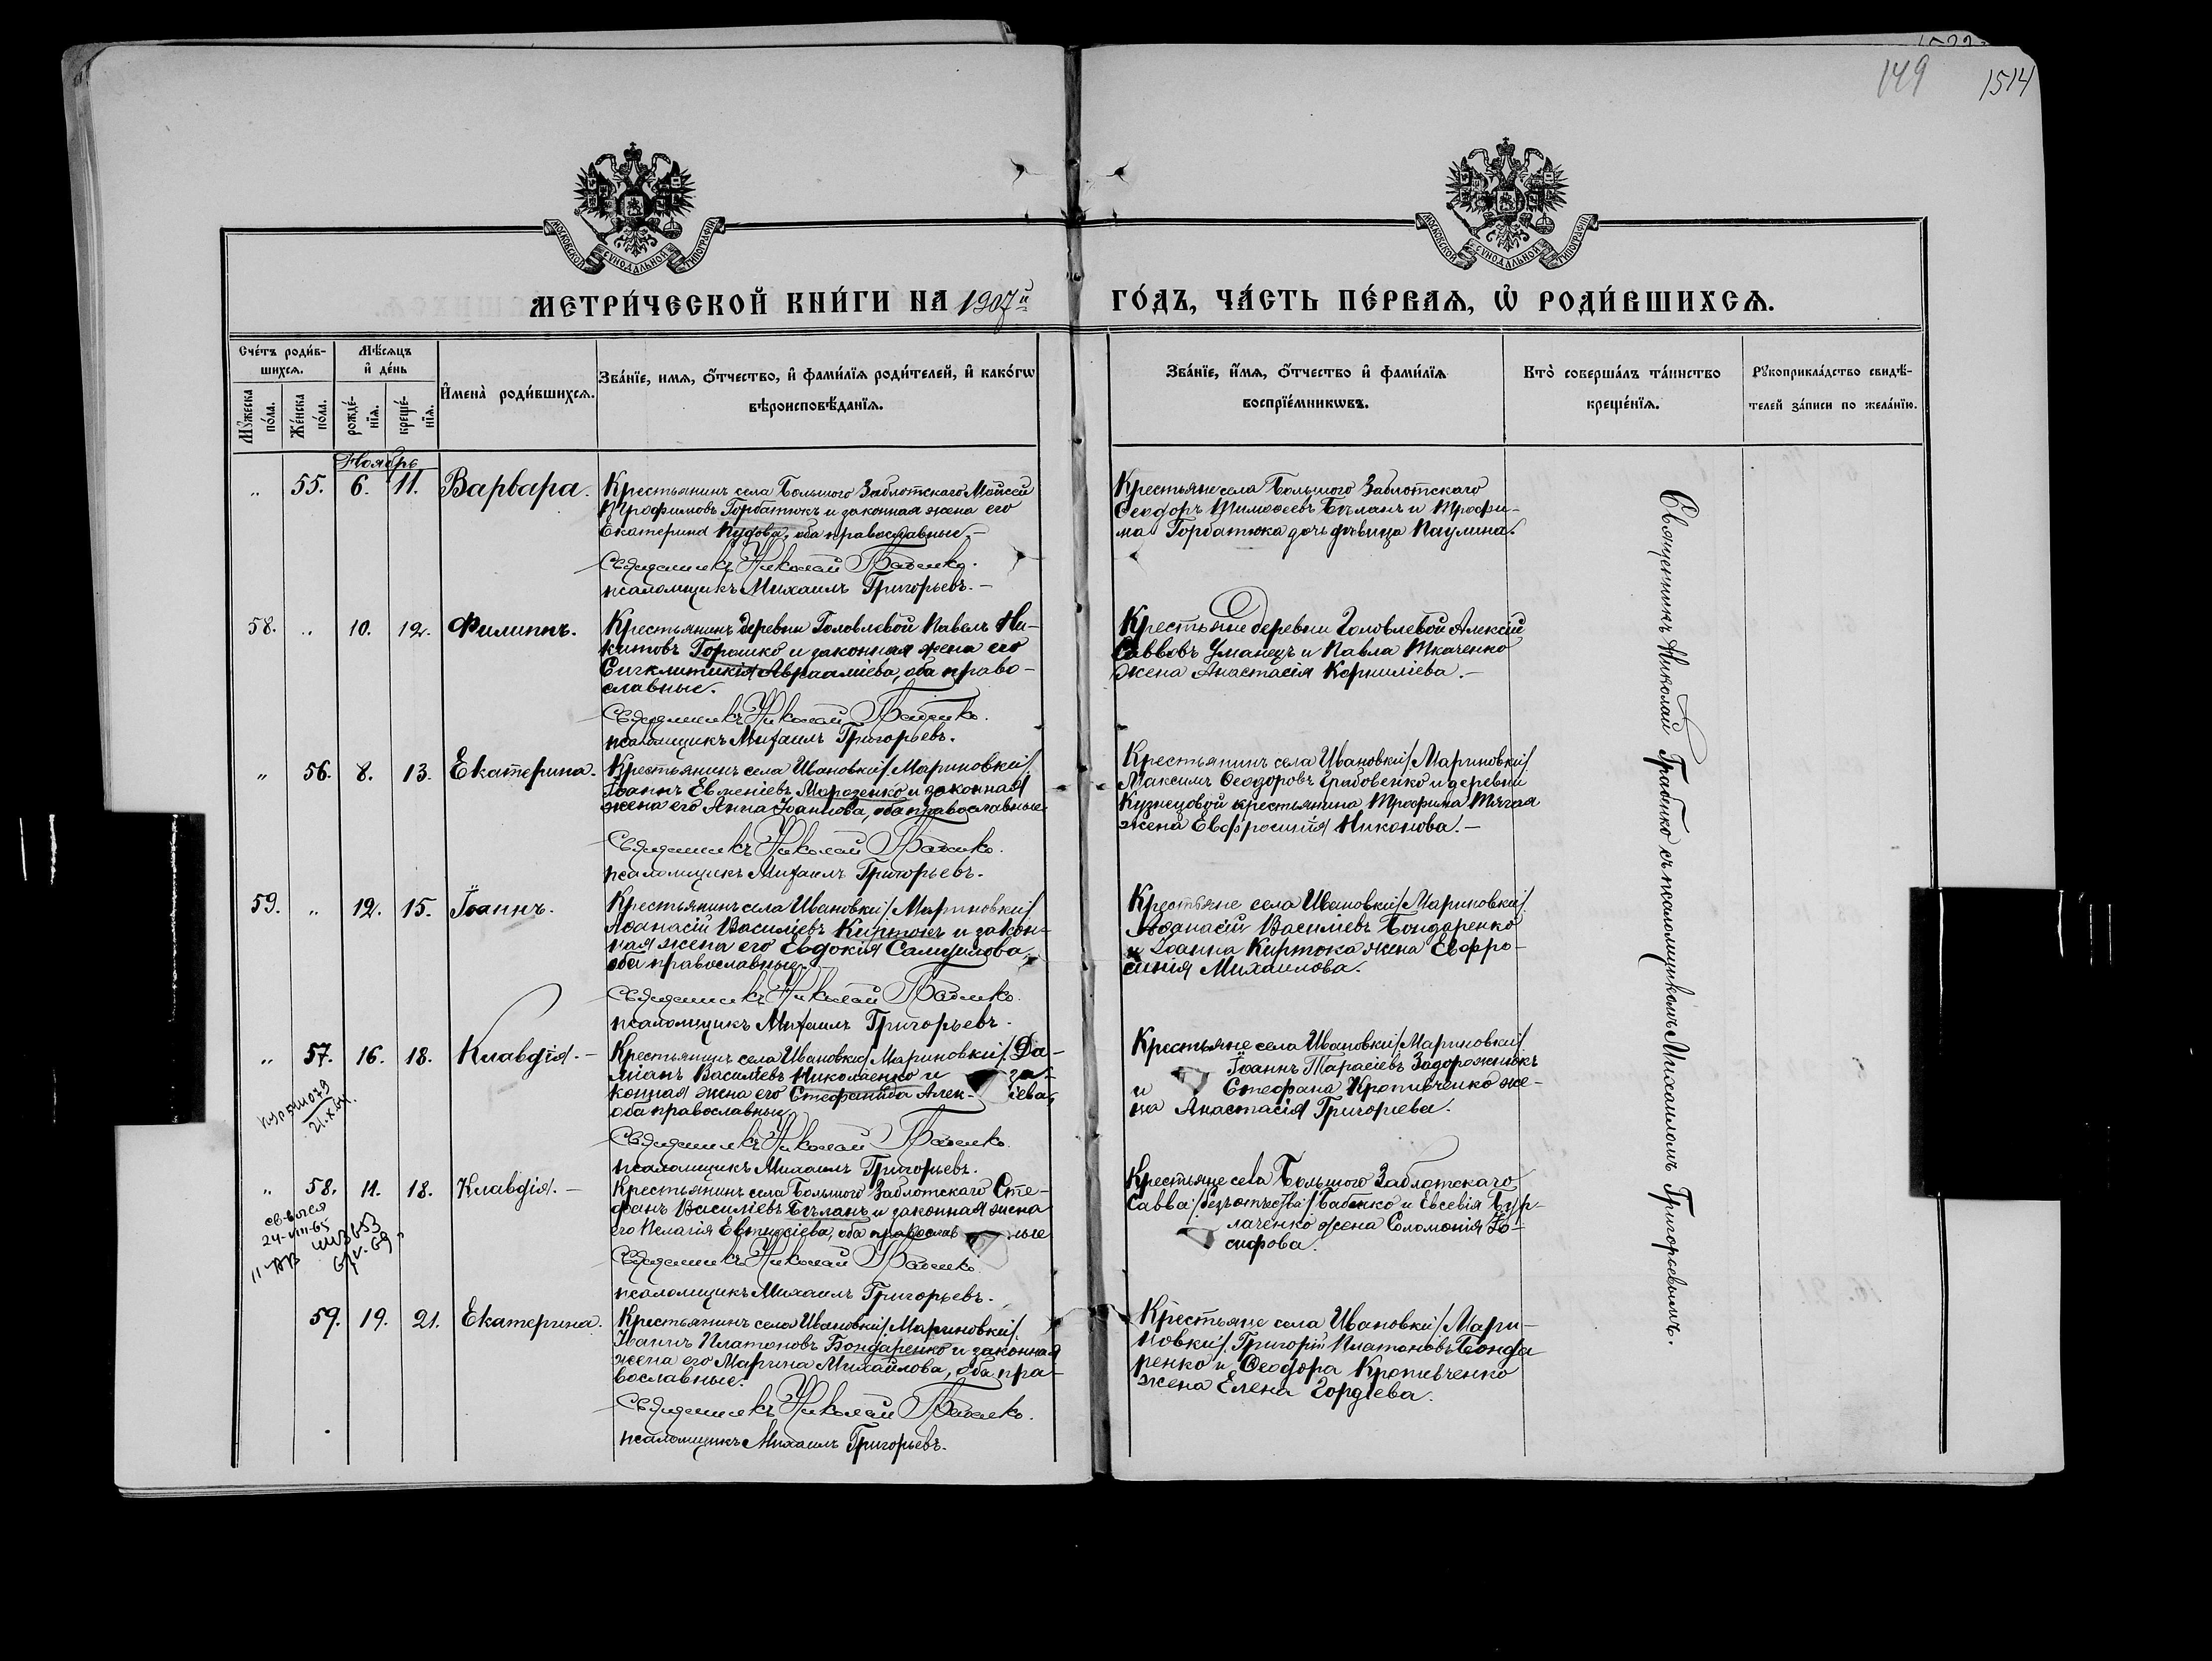 149
1514
МОСКОВСКОЙ СѴНОДАЛЬНОЙ ТИПОГРАФІИ
МОСКОВСКОЙ СѴНОДАЛЬНОЙ ТИПОГРАФІИ
МЕТРИ́ЧЕСКОЙ КНИ́ГИ НА 1907й
ГО́ДЪ, ЧА́СТЬ ПЕ́РВАѦ, Ѽ РОДИ́ВШИХСѦ.
Сче́тъ роди́в-
шихсѧ.
Мѣ́сѧцъ
и҆ де́нь
И҆мена̀ роди́вшихсѧ.
Зва́нїе, имѧ, ѻ҆́тчество, и҆ фами́лїѧ роди́телей, и҆ како́гѡ
вѣроисповѣ́данїѧ.
Мꙋ́жеска по́ла.
Же́нска по́ла.
рожде́-нїѧ.
креще́-нїѧ.
Зва́нїе, и҆́мѧ, ѻ҆́тчество и҆ фами́лїѧ
воспрїе́мникѡвъ.
Кто̀ соверша́лъ та́инство
креще́нїѧ.
Рꙋкоприкла́дство свидѣ́-
телей за́писи по жела́нїю.
Ноябрь
" 55. 6. 11. Варвара. Крестьянинъ села Большого Заблотскаго Моисей
Трофимовъ Горбатюкъ и законная жена его
Екатерина Иудова, оба православные.-
Священникъ Николай Бабенко.
псаломщикъ Михаилъ Григорьевъ.-
Крестьяне села Большого Заблотскаго
Ѳеодоръ Тимоѳеевъ Бѣланъ и Трофи-
ма Горбатюка дочь дѣвица Паулина.
58. " 10. 12. Филиппъ. Крестьянинъ деревни Головлевой Павелъ Ни-
китовъ Горошко и законная жена его
Сигклитикія Авраамiева, оба право-
славные.
Священникъ Николай Бабенко.
псаломщикъ Михаилъ Григорьевъ.
Крестьяне деревни Головлевой Алексій
Саввовъ Уманецъ и Павла Ткаченко
жена Анастасія Корниліева.-
" 56. 8. 13. Екатерина. Крестьянинъ села Ивановки/Мариновки/
Іоаннъ Евменіевъ Морозенко и законная
жена его Анна Іоаннова, оба православные
Священникъ Николай Бабенко.
псаломщикъ Михаилъ Григорьевъ.
Крестьянинъ села Ивановки/Мариновки/
Максимъ Ѳеодоровъ Грабовенко и деревни
Кузнецовой крестьянина Трофима Тягая
жена Евфросинія Никонова.-
59. " 12. 15. Іоаннъ. Крестьянинъ села Ивановки/Мариновки/
Аѳанасій Василіевъ Киртокъ и закон-
ная жена его Евдокія Самуилова,
оба православные.
Священникъ Николай Бабенко.
псаломщикъ Михаилъ Григорьевъ.
Крестьяне села Ивановки/Мариновки/
Аѳанасій Василіевъ Бондаренко
и Іоанна Киртока жена Евфро-
синія Михаилова.
" 57. 16. 18. Клавдія.- Крестьянинъ села Ивановки/Мариновки/ Да-
міанъ Василіевъ Николаенко и за-
конная жена его Стефанида Алек- іева,
оба православные
Священникъ Николай Бабенко.
псаломщикъ Михаилъ Григорьевъ.
Крестьяне села Ивановки/Мариновки/
Іоаннъ Тарасіевъ Задорожнюкъ
и Стефана Кропивченко же-
на Анастасія Григорьева.
" 58. 11. 18. Клавдія.- Крестьянинъ села Большого Заблотскаго Сте-
фанъ Василіевъ Бѣланъ и законная жена
его Пелагія Евтихіева, оба православ ные
Священникъ Николай Бабенко.
псаломщикъ Михаилъ Григорьевъ.
Крестьяне села Большого Заблотскаго
Савва/безъ отчества/Бабенко и Евсевія Бур-
лаченко жена Соломонія Іо-
сифова.
24-VIII-65
59. 19. 21. Екатерина. Крестьянинъ села Ивановки/Мариновки/
Іоаннъ Платоновъ Бондаренко и законная
жена его Марина Михайлова, оба пра-
вославные.
Священникъ Николай Бабенко.
псаломщикъ Михаилъ Григорьевъ.
Крестьяне села Ивановки/Мари-
новки/ Григорій Платоновъ Бонда
ренко и Ѳеодора Кропивченко
жена Елена Гордіева.
Священникъ Николай Бабенко съ псаломщикомъ Михаиломъ Григорьевымъ.